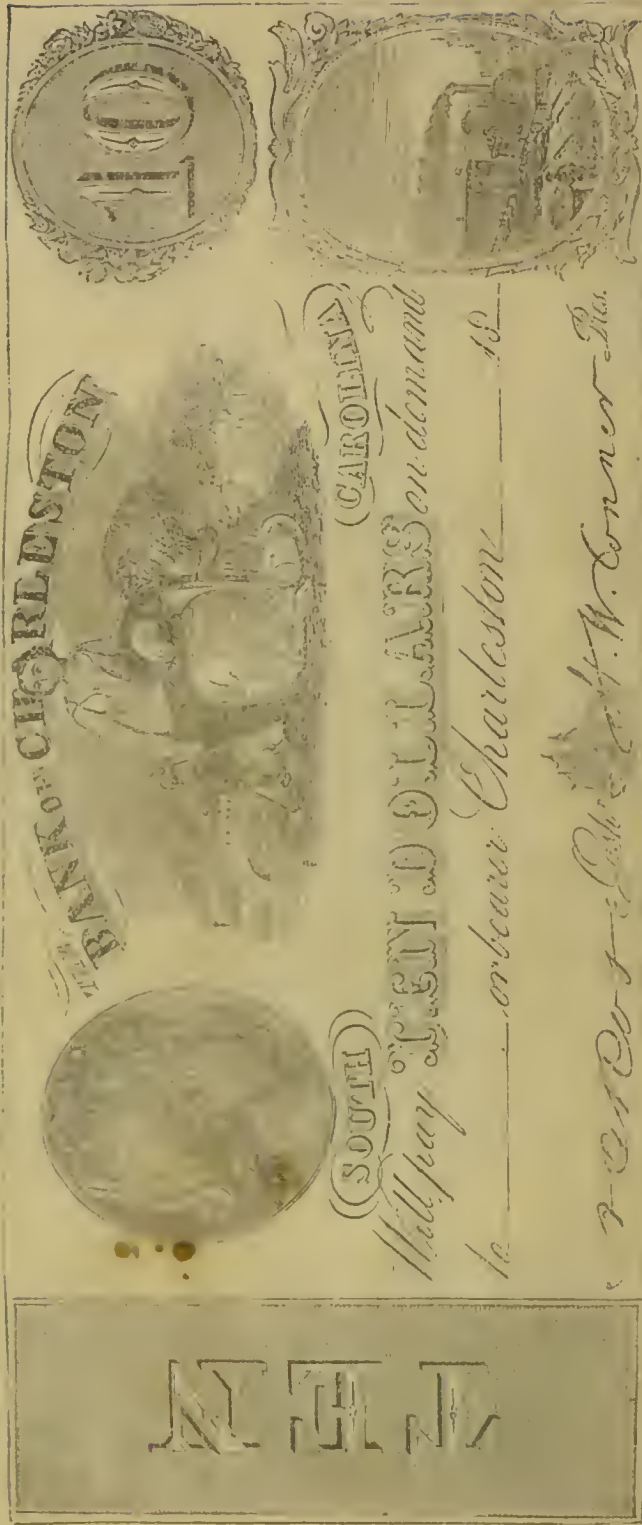 10
THE
BANK OF CHARLESTON
SOUTH CAROLINA
Will pay TEN DOLLARS on demand
to or bearer Charleston 18
Cash. H. W. Conner Pres.
TEN